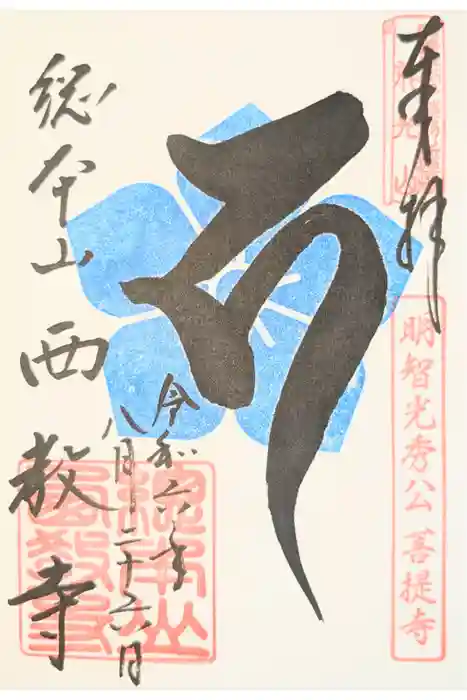 奉拝
明智光秀公菩提寺
令和六年
八月二十六日
総本山 西教寺